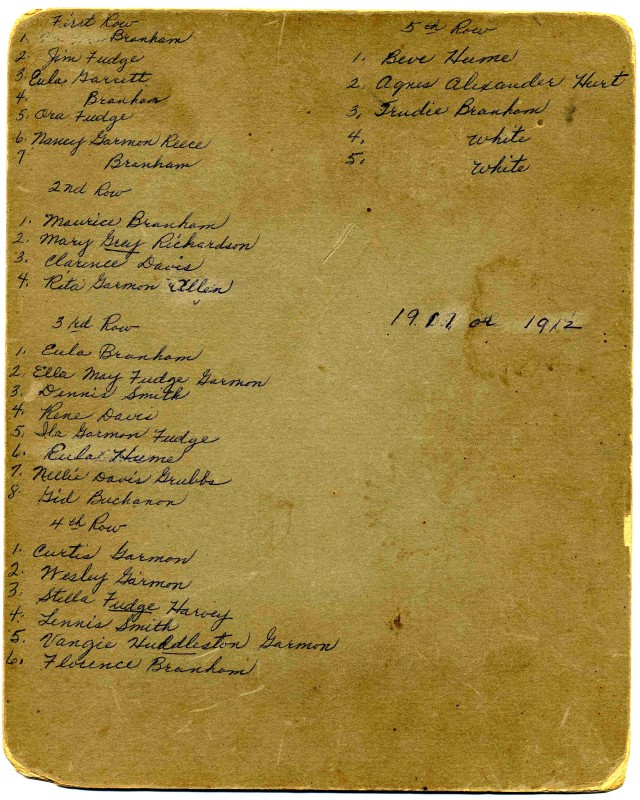 First Row
1. Branham
2. Jim Fudge
3. Eula Garrett
4. Branham
5. Ora Fudge
6. Nancy Garmon Reece
7 Branham
2nd Row
1. Maurice Branham
2. Mary Gray Richardson
3. Clarence Davis
4. Rita Garmon Allen
3rd Row
1. Eula Branham
2. Ella May Fudge Garmon
3. Dennis Smith
4. Rene Davis
5. Ila Garmon Fudge
6. Eula Hume
7. Nellie Davis Grubbs
8. Gid Buchanon
4th Row
1. Curtis Garmon
2. Wesley Garmon
3. Stella Fudge Harvey
4. Lennis Smith
5. Vangie Huddleston Garmon
6. Florence Branham
5th Row
1. Beve Hume
2. Agnes Alexander Hurt
3. Trudie Branham
4. White
5. White
or 1912